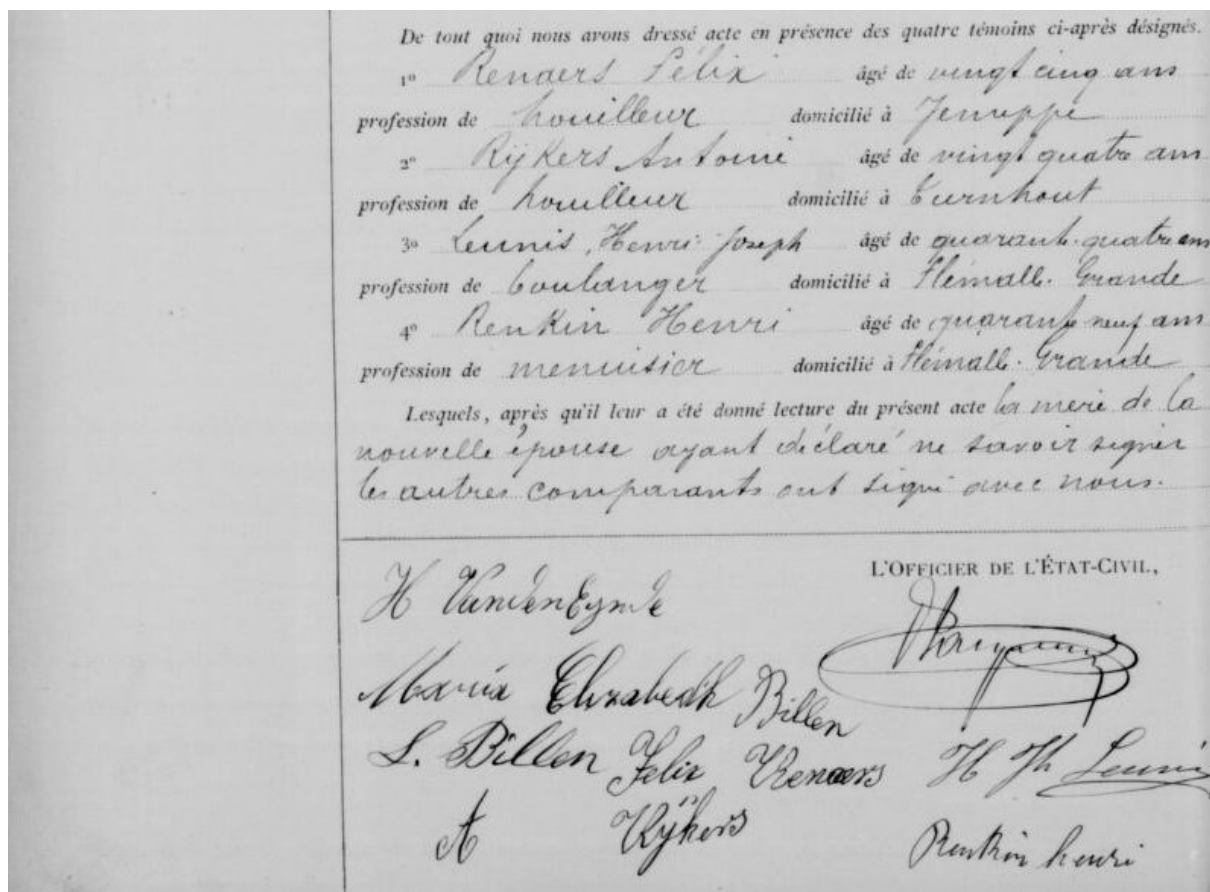 De tout quoi nous avons dressé acte en présence des quatre témoins ci-après désignés.
1º Renaers Félix âgé de vingt cinq ans
profession de houilleur domicilié à Jemeppe
2º Rÿkers Antoine âgé de vingt quatre ans
profession de houilleur domicilié à Turnhout
3º Leunis, Henri Joseph âgé de quarante-quatre ans
profession de boulanger domicilié à Flémalle-Grande
4º Renkin Henri âgé de quarante neuf ans
profession de menuisier domicilié à Flémalle-Grande
Lesquels, après qu'il leur a été donné lecture du présent acte la mère de la
nouvelle épouse ayant déclaré ne savoir signer
les autres comparants ont signé avec nous.
L'OFFICIER DE L'ÉTAT-CIVIL,
H VandenEynde
Maria Elizabeth Billen
L. Billen Felix Renaers H Jh Leunis
A Rÿkers
Renkin henri